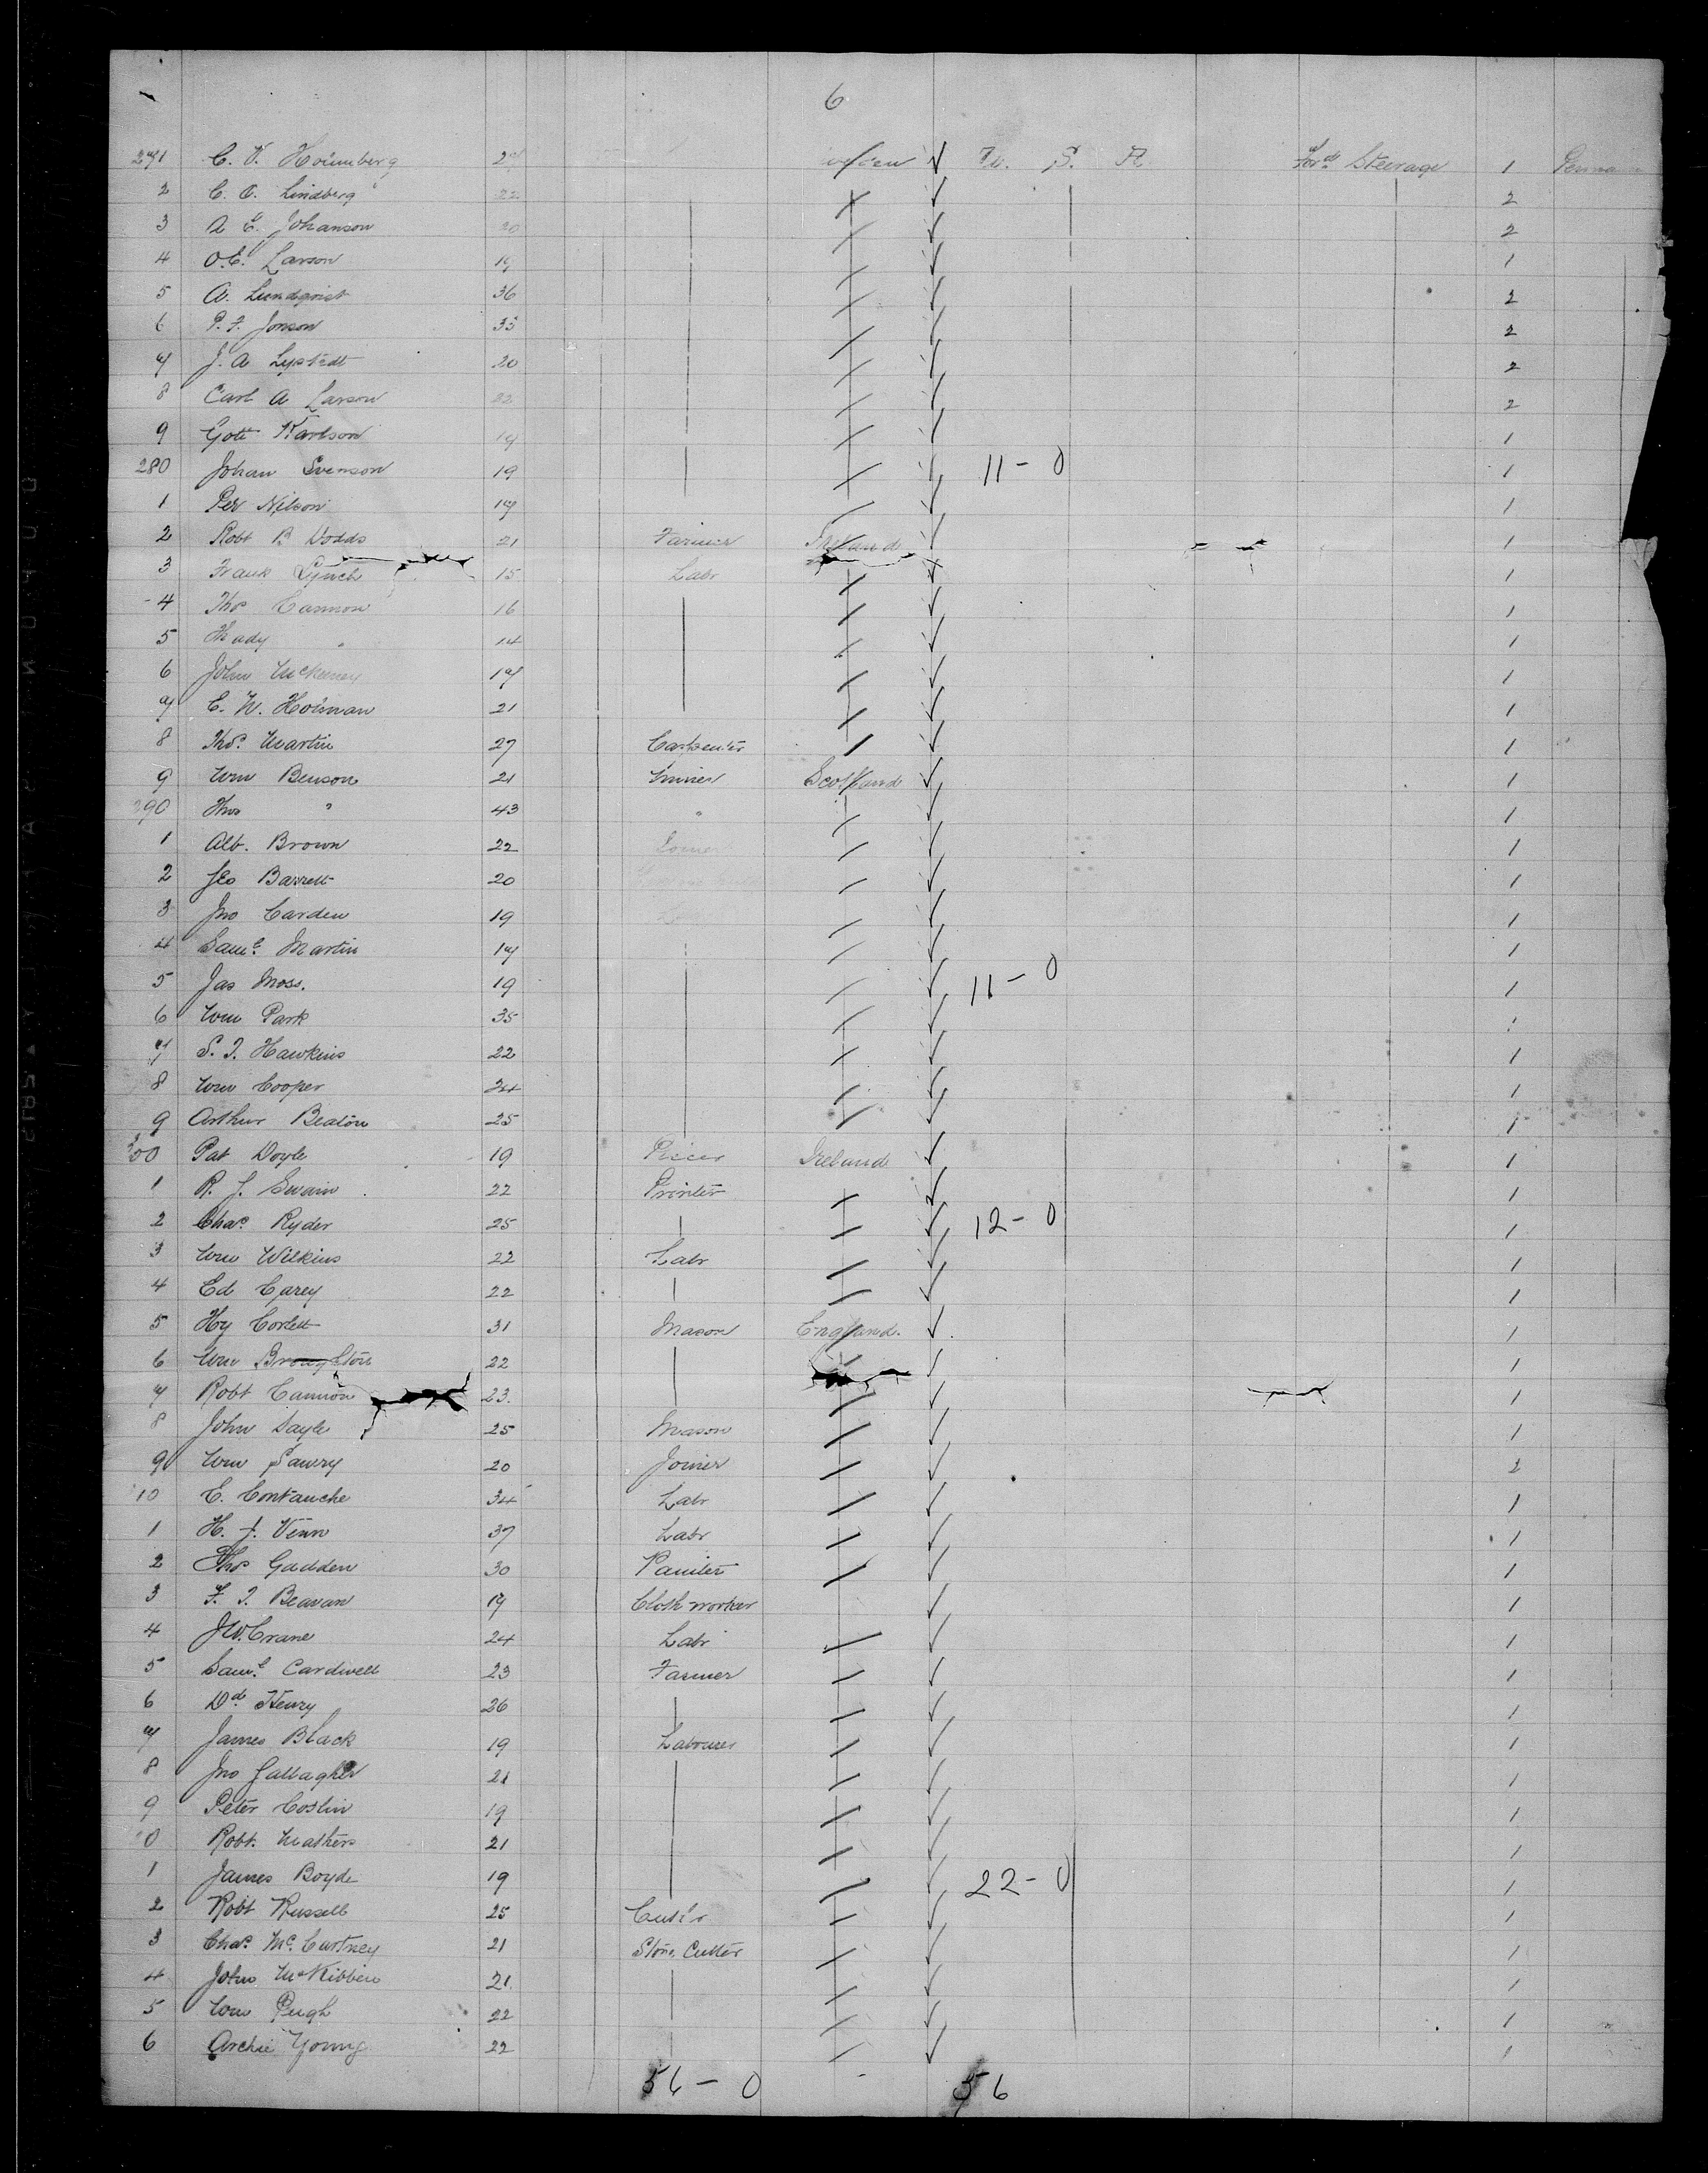 6
271 C. V. Holmberg 27 U. S. A. Ford Steerage 1 Penna
2 C. O. Lindberg 22 2
3 A E. Johanson 20 2
4 O. E. Larson 19 1
5 A. Lundqvist 36 2
6 P. F. Jonson 33 2
7 J. A 20 2
8 Carl A Larson 22 2
9 Gott Karlson 19 1
280 Johan Svenson 19 11 - 0 1
1 Per Nilson 17 1
2 Robt B Dodds 21 Farmer Ireland 1
3 Frank Lynch 15 Labr 1
4 Thos Cannon 16 1
5 Thady " 14 1
6 John McKenney 17 1
7 E. W. Holman 21 1
8 Thos. Martin 27 Carpenter 1
9 Wm Benson 21 Miner Scotland 1
290 Thos " 43 " 1
1 Alb. Brown 22 1
2 Geo Barrett 20 1
3 Jno Carden 19 1
4 Saml. Martin 17 1
5 Jas Moss. 19 11 - 0 1
6 Wm Park 35 1
7 S. J. Hawkins 22 1
8 Wm Cooper 24 1
9 Arthur Beaton 25 1
300 Pat Doyle 19 Ireland 1
1 R. J. Swain 22 Printer 1
2 Chas. Ryder 25 12 - 0 1
3 Wm Wilkins 22 Labr 1
4 Ed Carey 22 1
5 Hy Corlett 31 Mason England. 1
6 Wm 22 1
7 Robt Cannon 23. 1
8 John Sayle 25 Mason 1
9 Wm Sawry 20 Joiner 2
10 E. Contanche 34 Labr 1
1 H. J. Venn 37 Labr 1
2 Thos Gadden 30 Painter 1
3 F. J. Beavan 19 Cloth worker 1
4 J. W. Crane 24 Labr 1
5 Saml. Cardwell 23 Farmer 1
6 Dd. Henry 26 1
7 James Black 19 Labourer 1
8 Jno Gallagher 21 1
9 Peter Coslin 19 1
0 Robt. Mathers 21 1
1 James Boyde 19 22 - 0 1
2 Robt Russell 25 1
3 Chas. McCartney 21 Stone Cutter 1
4 John McKibbin 21. 1
5 Wm Pugh 22 1
6 Archie Young 22 1
56 - 0 56